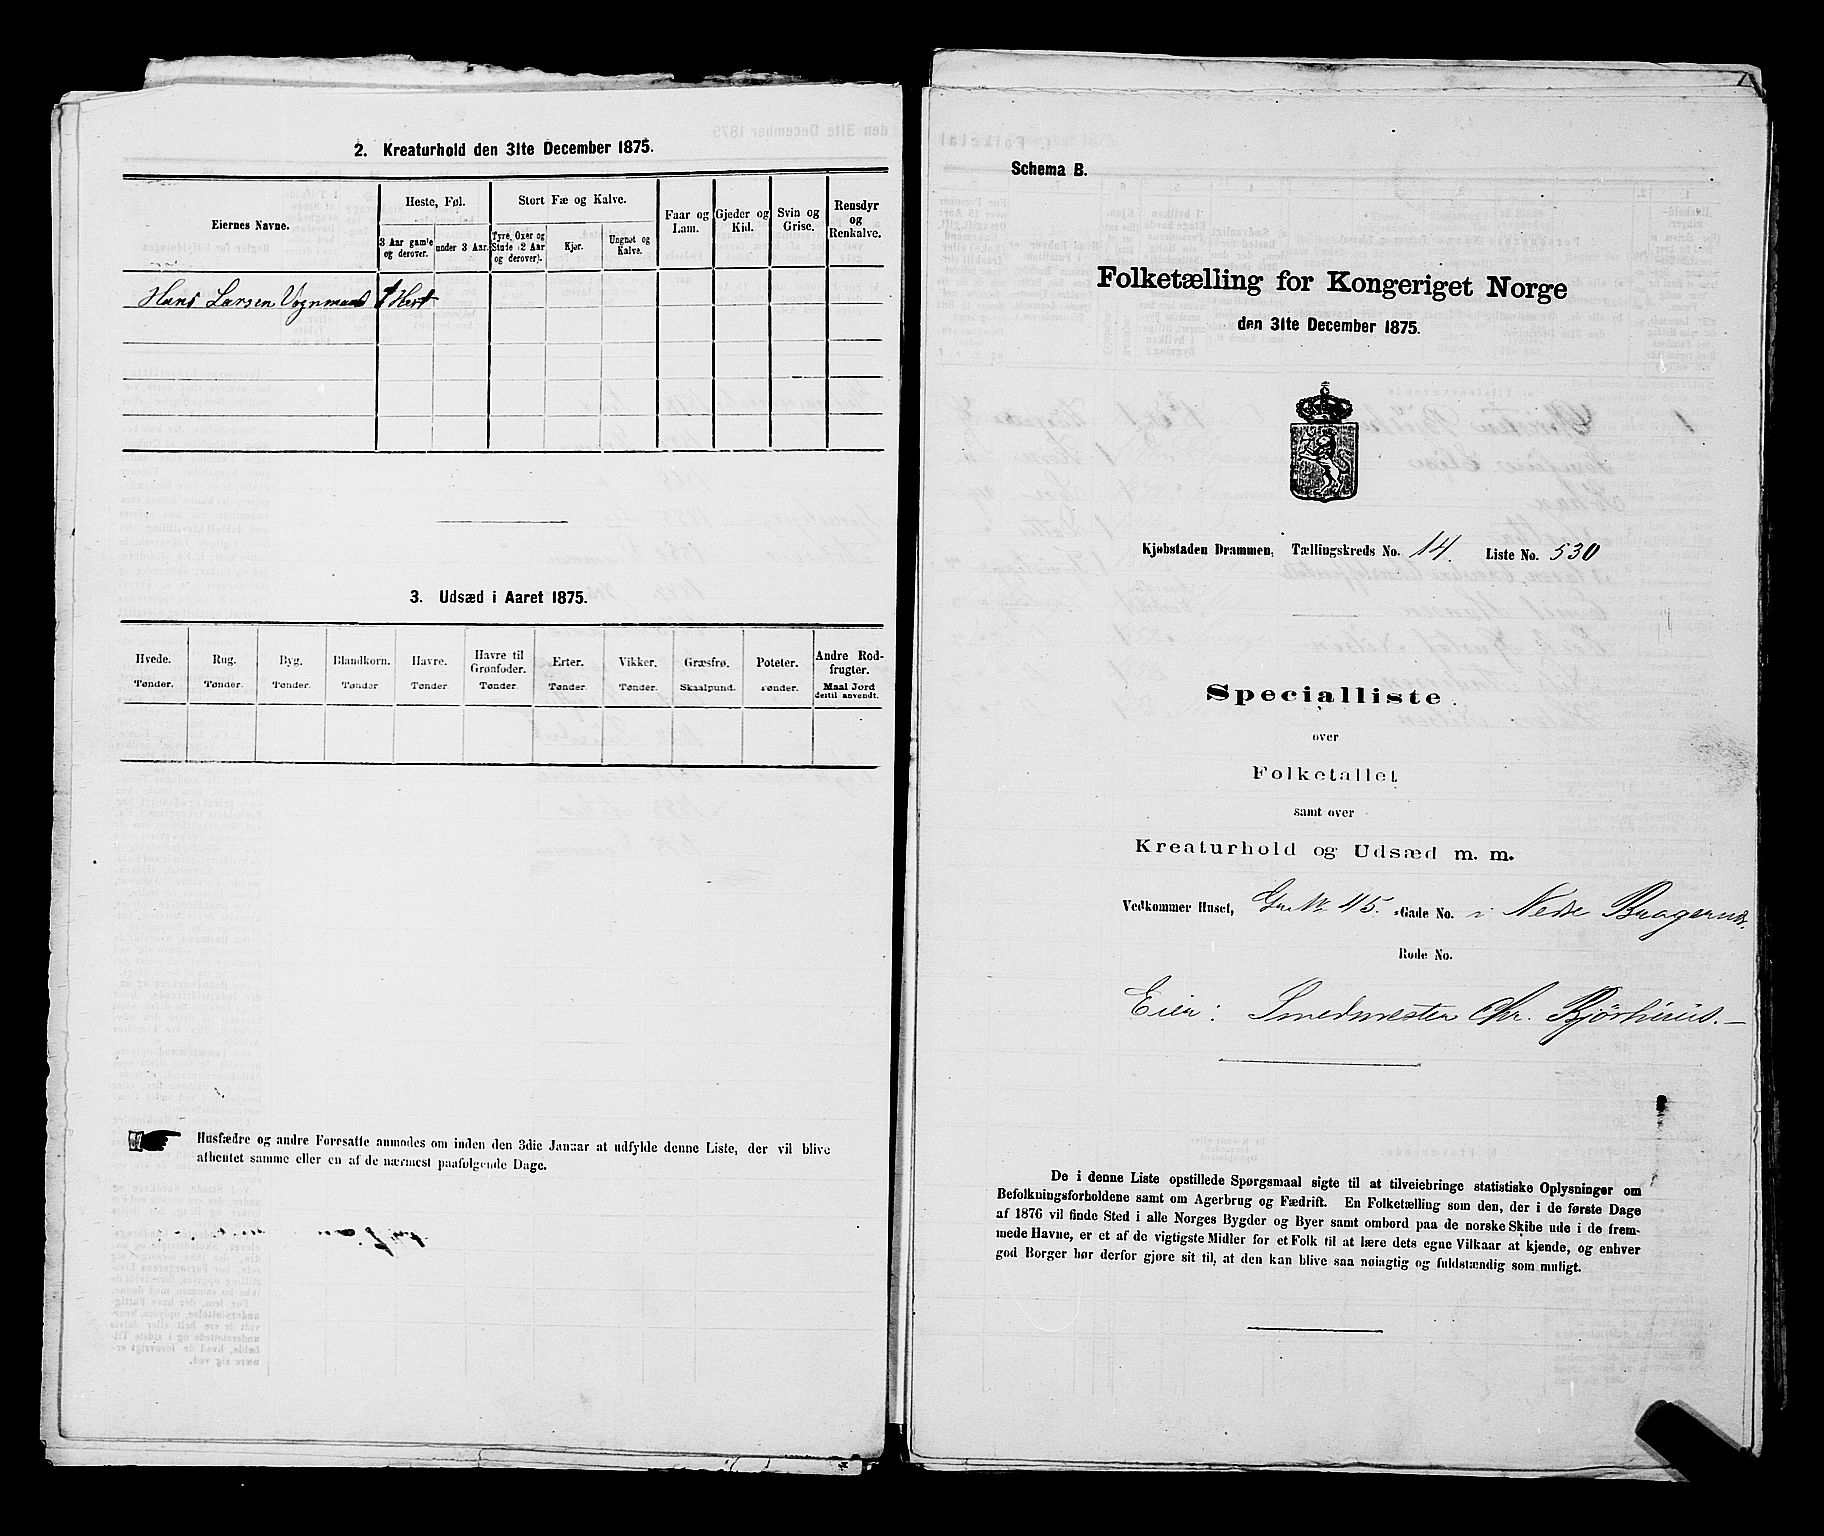 2. Kreaturhold den 31te December 1875.
Eiernes Navne.
Heste, Føl.
3 Aar gamle og derover.
under 3 Aar.
Stort Fæ og Kalve.
Tyre, Oxer og Stude (2 Aar og derover).
Kjør.
Ungnøt og Kalve.
Faar og Lam.
Gjeder og Kid.
Svin og Grise.
Rensdyr og Renkalve.
Hans Larsen Vognmand 1 Hest
3. Udsæd i Aaret 1875.
Hvede. Rug. Byg. Blandkorn. Havre. Havre til Grønfoder. Erter. Vikker. Græsfrø. Poteter. Andre Rodfrugter.
Tønder. Tønder. Tønder. Tønder Tønder. Tønder. Tønder. Tønder. Skaalpund. Tønder. Maal Jord dertil anvendt.
Husfædre og andre Foresatte anmodes om inden den 3die Januar at udfylde denne Liste, der vil blive
afhentet samme eller en af de nærmest paafølgende Dage.
Schema B.
Folketælling for Kongeriget Norge
den 31te December 1875.
Kjøbstaden Drammen, Tællingskreds No. 14. Liste No. 530
Specialliste
over
Folketallet
samt over
Kreaturhold og Udsæd m. m.
Vedkommer Huset, Gr. N. 45. Gade No. i Nedre Bragernes.
Rode No.
Eier: Smedmester Chr. Bjørhuus.
De i denne Liste opstillede Spørgsmaal sigte til at tilveiebringe statistiske Oplysninger om
Befolkningsforholdene samt om Agerbrug og Fædrift. En Folketælling som den, der i de første Dage
af 1876 vil finde Sted i alle Norges Bygder og Byer samt ombord paa de norske Skibe ude i de frem-
mede Havne, er et af de vigtigste Midler for et Folk til at lære dets egne Vilkaar at kjende, og enhver
god Borger bør derfor gjøre sit til, at den kan blive saa nøiagtig og fuldstændig som muligt.